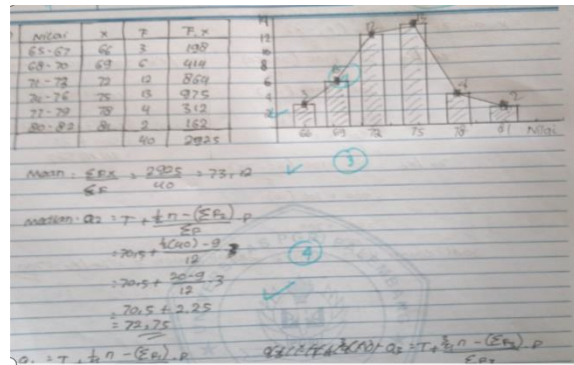 Nilai x F F.x
65-67 66 3 198
68-70 69 6 414
71-73 72 12 864
74-76 75 13 975
77-79 78 4 312
80-82 81 2 162
40 2925
14
12
10
8
6
4
2
66 69 72 75 78 81 Nilai
3
Mean: ΣFx / ΣF = 2925 / 40 = 73,12
Median: Q2 = T + ½n - (ΣF2) . P / ΣF
= 70,5 + ½(40) - 9 / 12 3
= 70,5 + 20-9 / 12 . 3
4
= 70,5 + 2,25
= 72,75
= T + ¼n - (ΣF) . P
Q3 = T + ¾n - (ΣF) . P